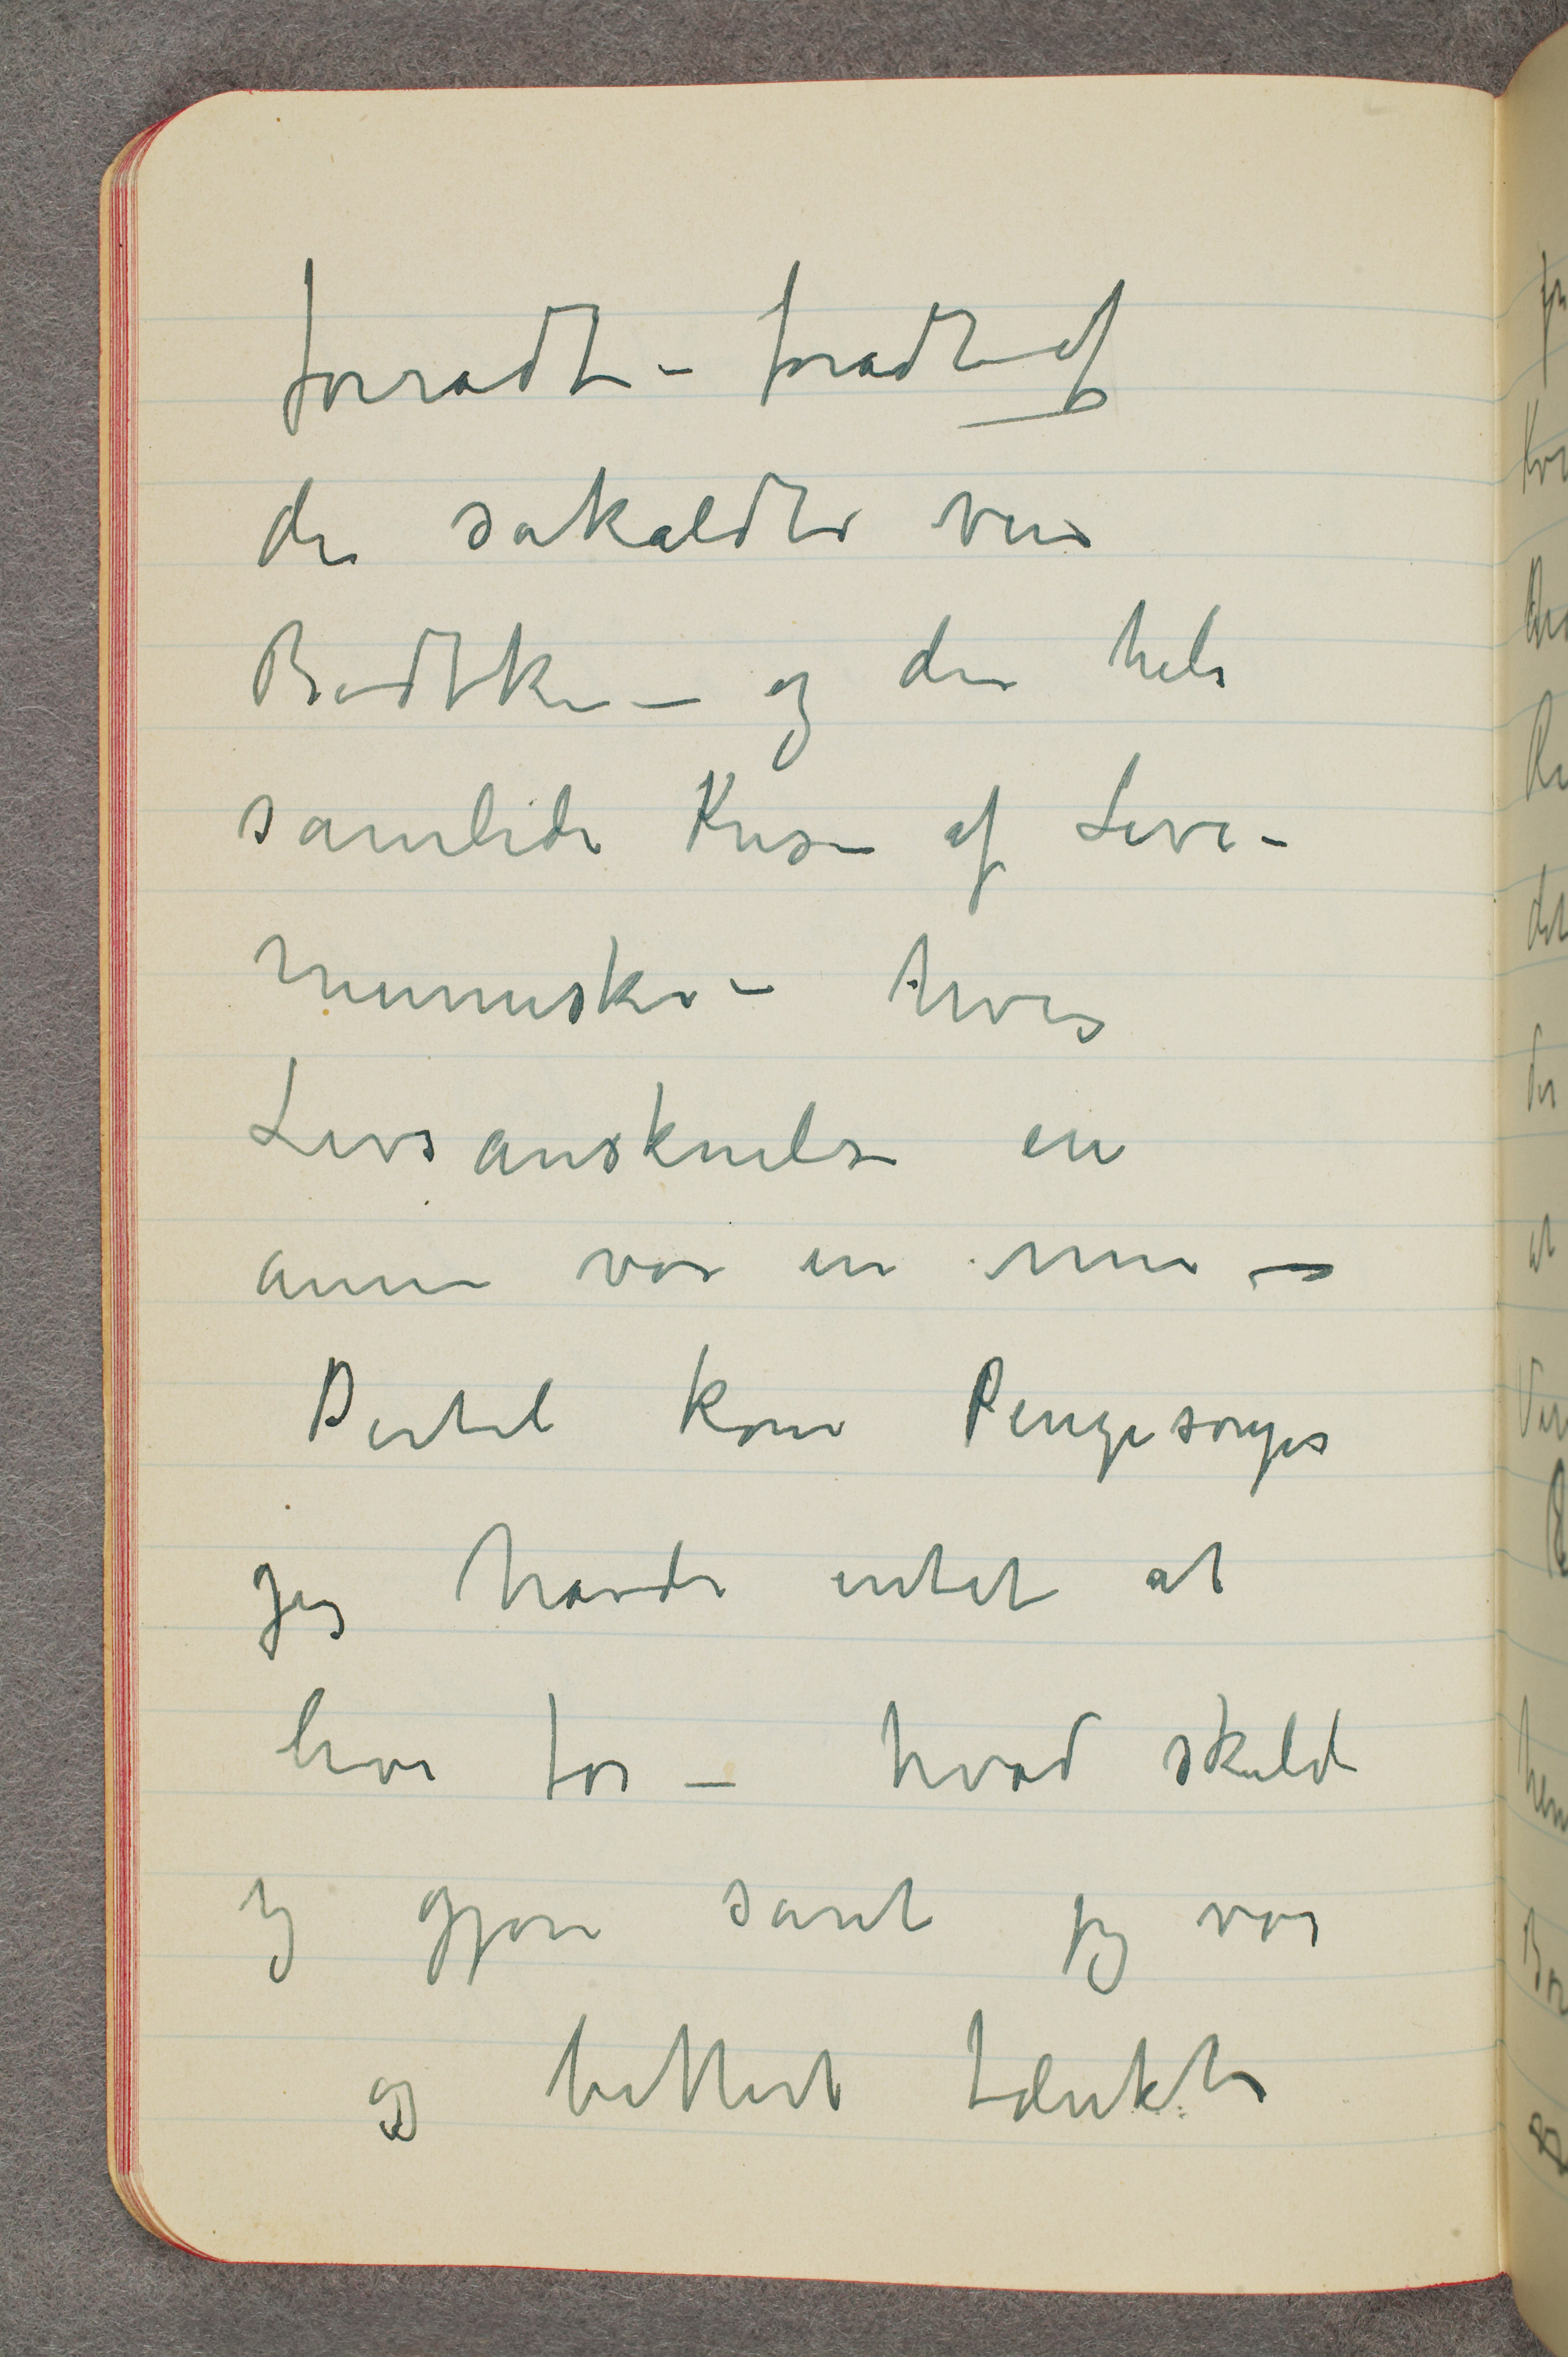 forradt – foradt af
den såkaldte ven
Bødtker – og den hele
samlede Kres af Leve-
mennesker – hvis
Livsanskuelse en
annen var en min –
Dertil kom Pengesorger
jeg havde intet at
leve for – hvad skulde
jeg gjøre samt jeg var
og bittert tænkte